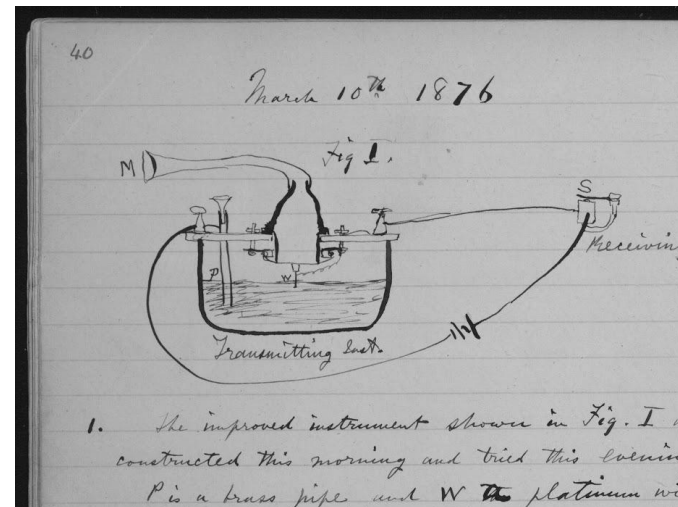 40
March 10th 1876
Fig I.
M
S
Receiving
P
W
Transmitting Inst.
1. The improved instrument shown in Fig. I
constructed this morning and tried this evenin
P is a brass pipe and W the platinum wi